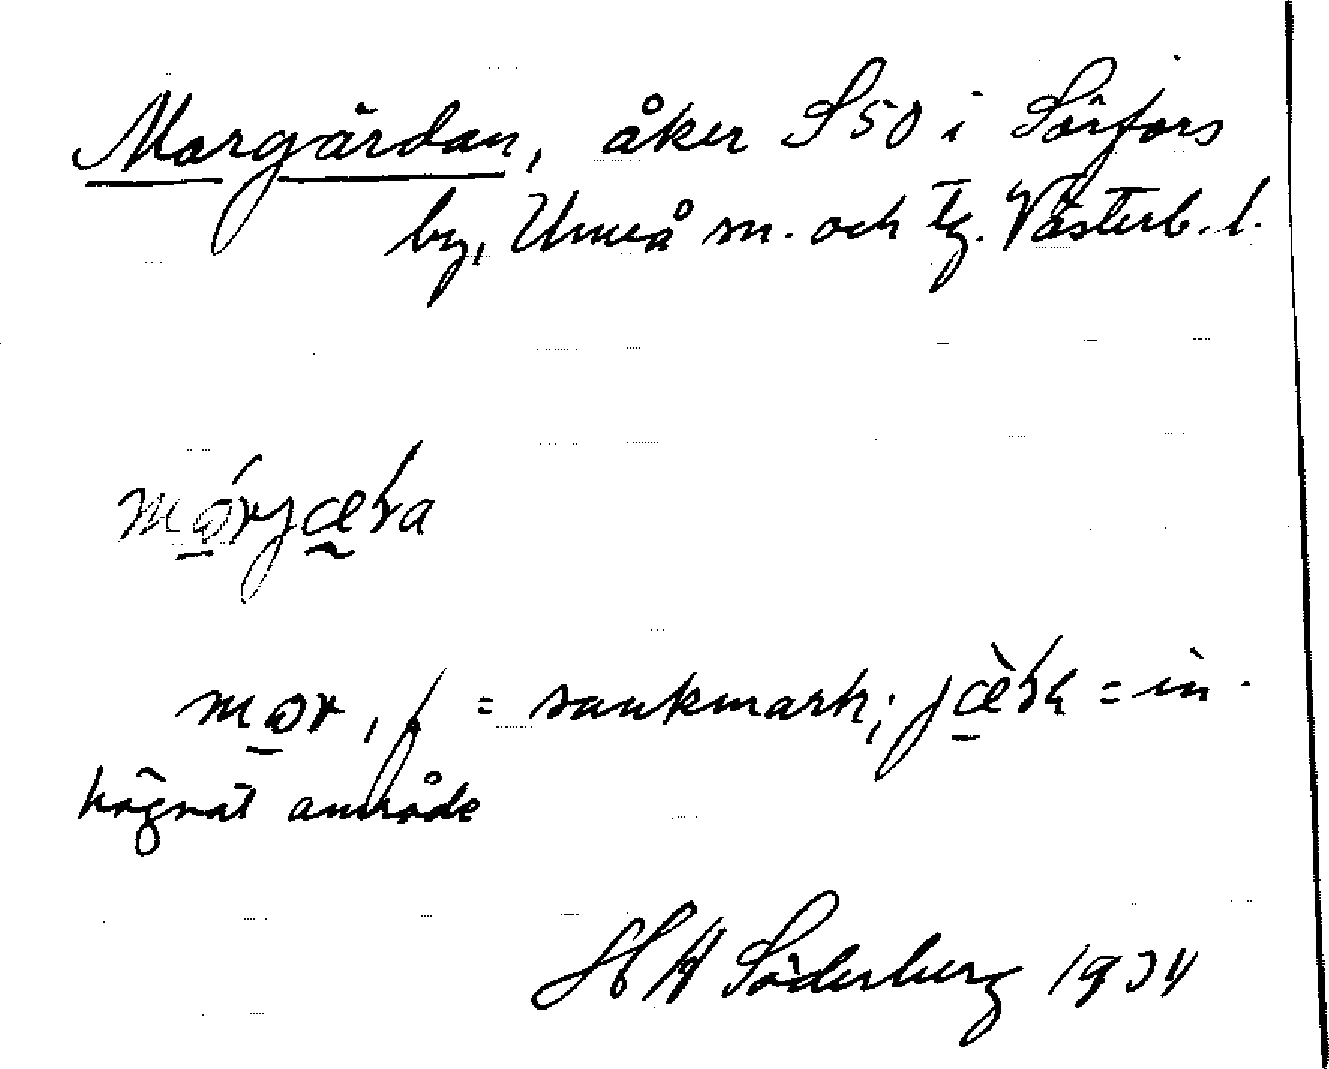 Morgärdan, åker S50 i Sörfors
by, Umeå sn. och tg. Västerb. l.
mørjæra
mør, f = sankmark; jæra = in-
hägnat område
H H Söderberg 1934